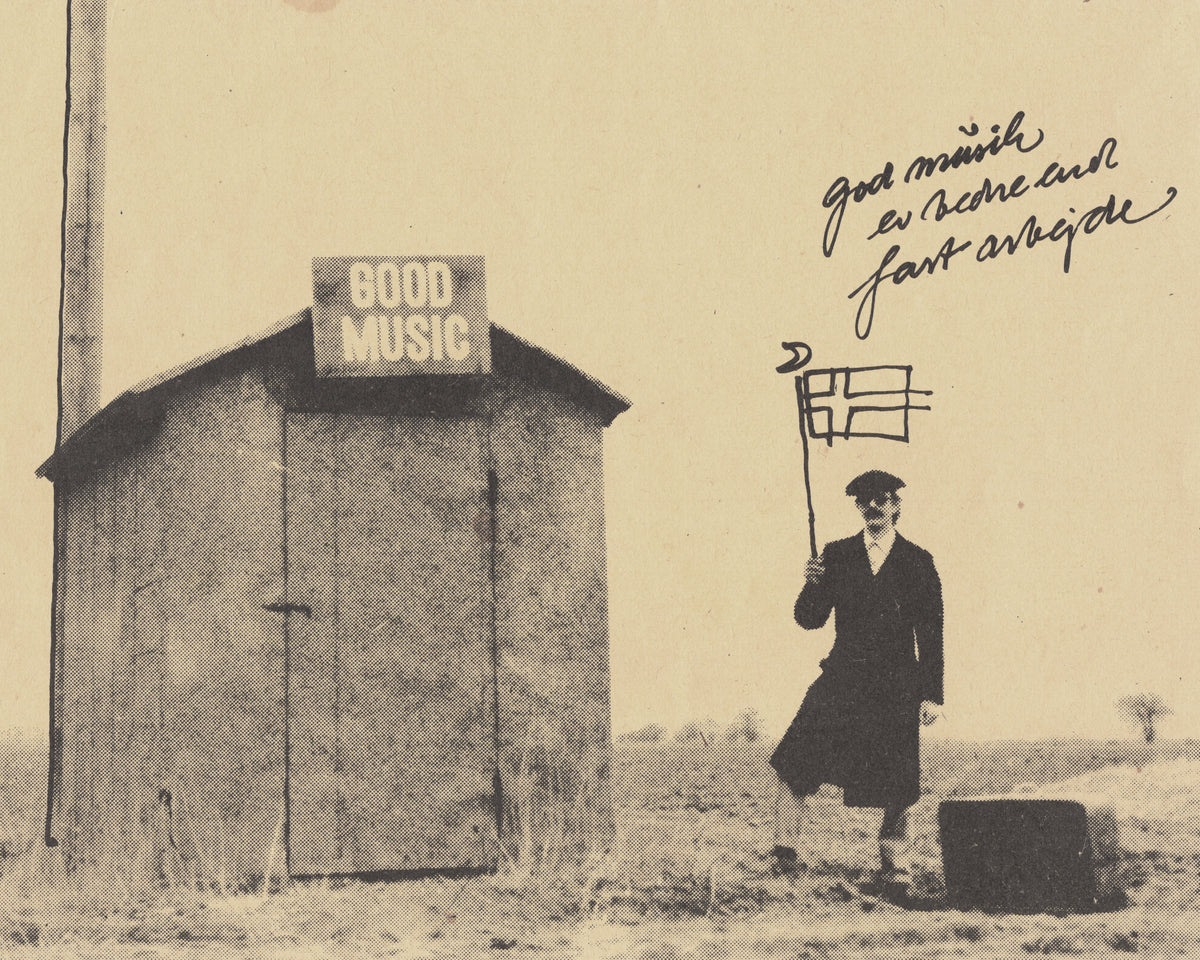 GOOD
MUSIC
god müsik
er bedre end
fast arbejde